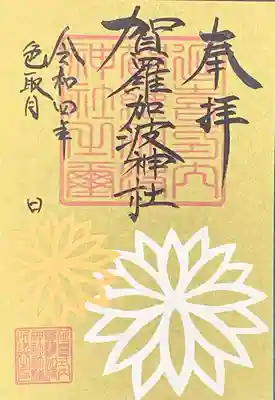 奉拝
賀羅加波神社
令和四年
色取月 日